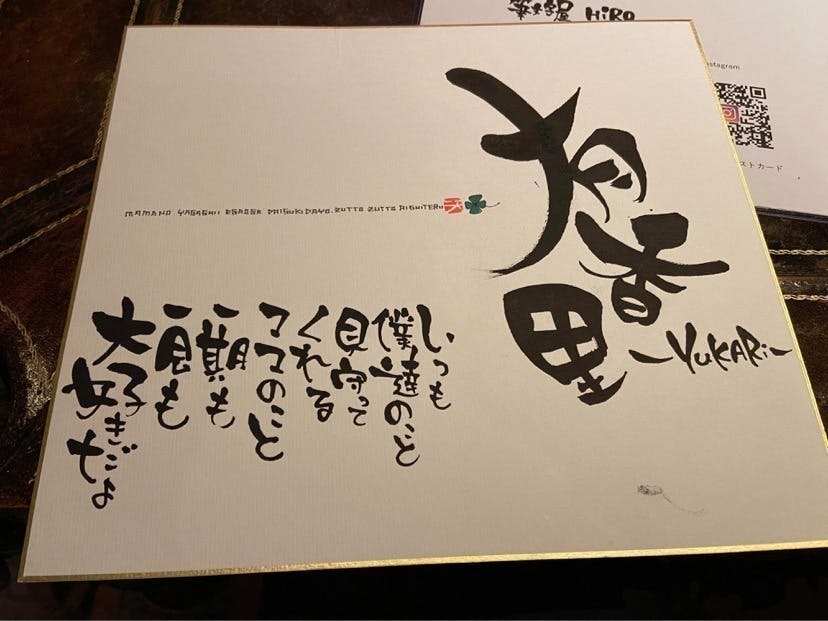 筆文字屋 HiRO
nstagram
ストカード
有香里
-YUKARi-
MAMANO YASASHII EGAOGA DAISUKI DAYO. ZUTTO ZUTTO AISHITERU
いつも
僕達のこと
見守って
くれる
ママのこと
一期も
一良も
大好きだよ